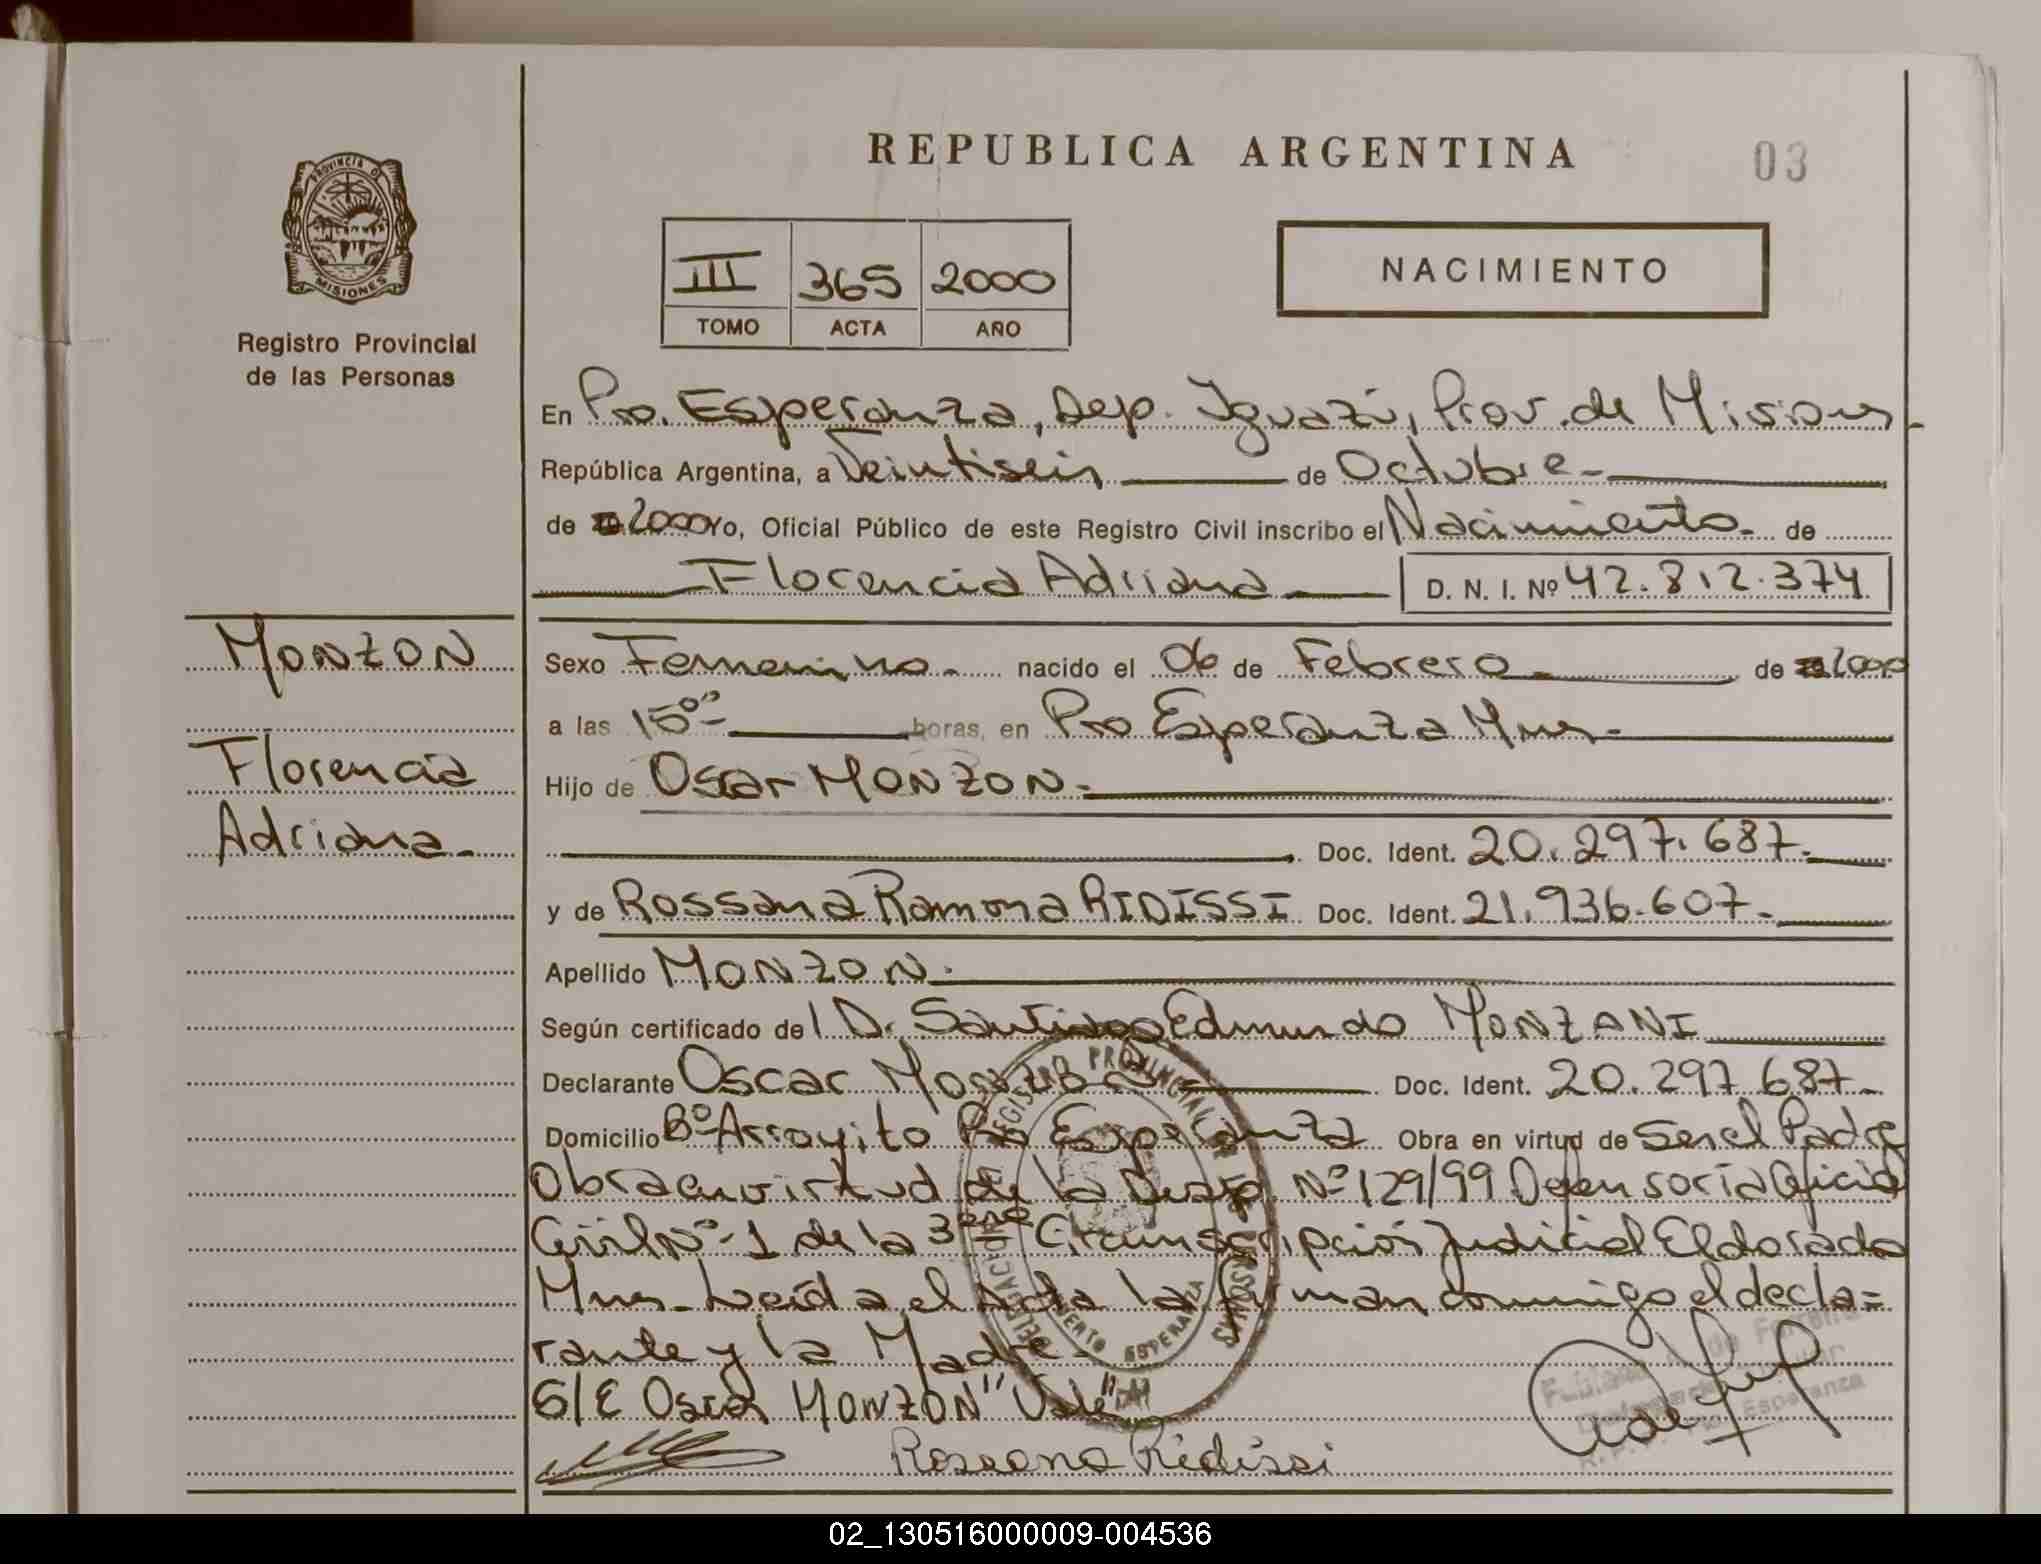 REPUBLICA ARGENTINA
03
PROVINCIA DE
MISIONES
Registro Provincial
de las Personas
III 365 2000
TOMO ACTA AÑO
NACIMIENTO
En Pto. Esperanza, Dep. Iguazú, Prov. de Misiones
República Argentina, a Veintiseis de Octubre
de 2000 Yo, Oficial Público de este Registro Civil inscribo el Nacimiento de
Florencia Adriana D. N. I. Nº 42.812.374
MONZON
Florencia
Adriana
Sexo Femenino nacido el 06 de Febrero de 2000
a las 15⁰⁰ horas, en Pto Esperanza Mnes
Hijo de Oscar MONZON
Doc. Ident. 20.297.687
y de Rossana Ramona RIDISSI Doc. Ident. 21.936.607
Apellido MONZON
Según certificado del Dr. Santiago Edmundo MONZANI
Declarante Oscar Doc. Ident. 20.297.687
Domicilio Bº Arroyito Pto Esperanza Obra en virtud de Ser el Padre
Obra en virtud de la Disp. Nº 129/99 Defensoría Oficial
Civil Nº 1 de la 3era Circunscripción Judicial Eldorado
Mnes. Leída el Acta la firman conmigo el decla=
rante y la Madre
S/E Oscar MONZON "Vale"
Rossana Ridissi
REGISTRO PROVINCIAL DE LAS PERSONAS
DELEGACION
ESPERANZA
de Ferreira
Esperanza
02_130516000009-004536